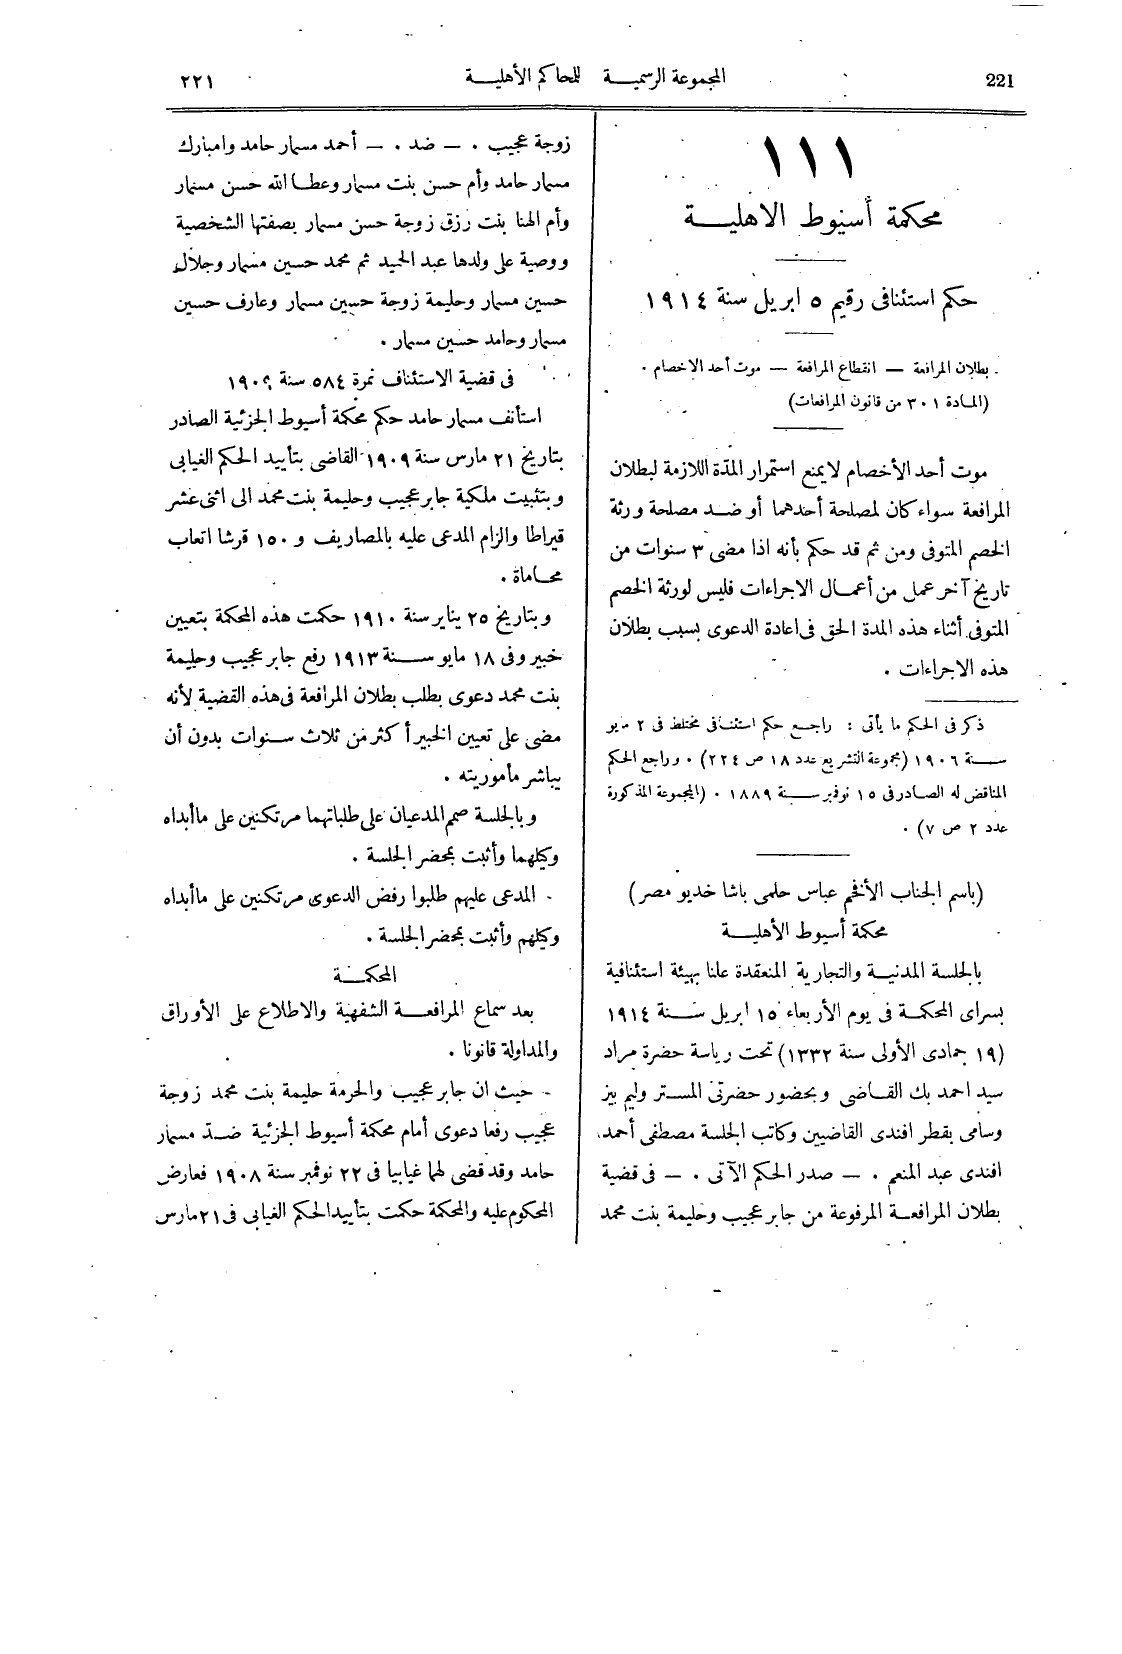 221
المجموعة الرسمية للمحاكم الأهلية
٢٢١
١١١
محكمة أسيوط الاهلية
حكم استئنافى رقيم ٥ ابريل سنة ١٩١٤
بطلان المرافعة — انقطاع المرافعة — موت أحد الاخصام .
(المادة ٣٠١ من قانون المرافعات)
موت أحد الأخصام لا يمنع استمرار المدة اللازمة لبطلان
المرافعة سواء كان لمصلحة أحدهما أو ضد مصلحة ورثة
الخصم المتوفى ومن ثم قد حكم بأنه اذا مضى ٣ سنوات من
تاريخ آخر عمل من أعمال الاجراءات فليس لورثة الخصم
المتوفى أثناء هذه المدة الحق فى اعادة الدعوى بسبب بطلان
هذه الاجراءات .
ذكر فى الحكم ما يأتى : راجع حكم استئنافى مختلط فى ٢ مايو
سنة ١٩٠٦ (مجموعة التشريع عدد ١٨ ص ٢٢٤) . وراجع الحكم
المناقض له الصادر فى ١٥ نوفمبر سنة ١٨٨٩ . (المجموعة المذكورة
عدد ٢ ص ٧) .
(باسم الجناب الأفخم عباس حلمى باشا خديو مصر)
محكمة أسيوط الأهلية
بالجلسة المدنية والتجارية المنعقدة علنا بهيئة استئنافية
بسراى المحكمة فى يوم الأربعاء ١٥ ابريل سنة ١٩١٤
(١٩ جمادى الأولى سنة ١٣٣٢) تحت رياسة حضرة مراد
سيد احمد بك القاضى وبحضور حضرتى المستر وليم بيز
وسامى بقطر افندى القاضيين وكاتب الجلسة مصطفى أحمد
افندى عبد المنعم . — صدر الحكم الآتى . — فى قضية
بطلان المرافعة المرفوعة من جابر عجيب وحليمة بنت محمد
زوجة عجيب . — ضد . — أحمد مسمار حامد وامبارك
مسمار حامد وأم حسن بنت مسمار وعطا الله حسن مسمار
وأم الهنا بنت رزق زوجة حسن مسمار بصفتها الشخصية
ووصية على ولدها عبد الحميد ثم محمد حسين مسمار وجلال
حسين مسمار وحليمة زوجة حسين مسمار وعارف حسين
مسمار وحامد حسين مسمار .
فى قضية الاستئناف نمرة ٥٨٤ سنة ١٩٠٩
استأنف مسمار حامد حكم محكمة أسيوط الجزئية الصادر
بتاريخ ٢١ مارس سنة ١٩٠٩ القاضى بتأييد الحكم الغيابى
وبتثبيت ملكية جابر عجيب وحليمة بنت محمد الى اثنى عشر
قيراطا والزام المدعى عليه بالمصاريف و ١٥٠ قرشا اتعاب
محاماة .
وبتاريخ ٢٥ يناير سنة ١٩١٠ حكمت هذه المحكمة بتعيين
خبير وفى ١٨ مايو سنة ١٩١٣ رفع جابر عجيب وحليمة
بنت محمد دعوى بطلب بطلان المرافعة فى هذه القضية لأنه
مضى على تعيين الخبير أكثر من ثلاث سنوات بدون أن
يباشر مأموريته .
وبالجلسة صمم المدعيان على طلباتهما مرتكنين على ماأبداه
وكيلهما وأثبت بمحضر الجلسة .
المدعى عليهم طلبوا رفض الدعوى مرتكنين على ماأبداه
وكيلهم وأثبت بمحضر الجلسة .
المحكمة
بعد سماع المرافعة الشفهية والاطلاع على الأوراق
والمداولة قانونا .
حيث ان جابر عجيب والحرمة حليمة بنت محمد زوجة
عجيب رفعا دعوى أمام محكمة أسيوط الجزئية ضد مسمار
حامد وقد قضى لهما غيابيا فى ٢٢ نوفمبر سنة ١٩٠٨ فعارض
المحكوم عليه والمحكمة حكمت بتأييد الحكم الغيابى فى ٢١ مارس